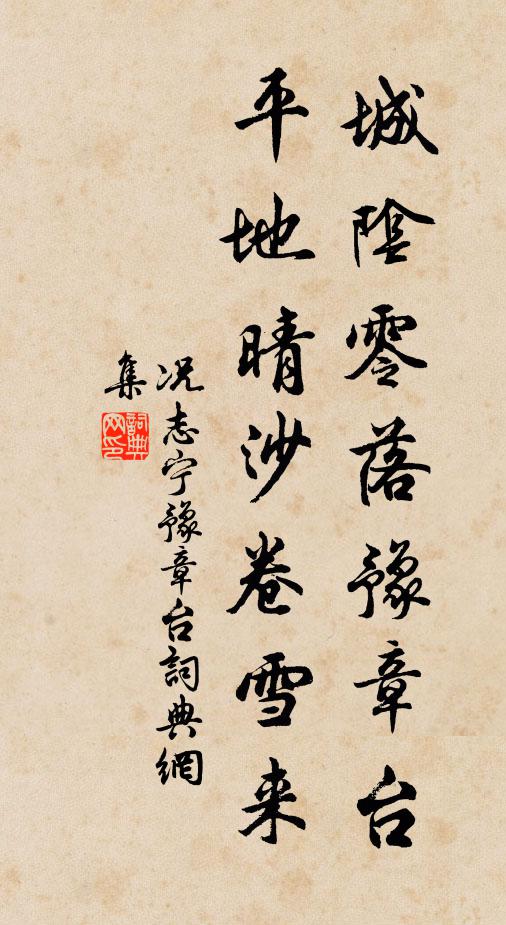 城陰零落豫章台
平地晴沙卷雪来
况志宁豫章台詞典網
集
詞典网印